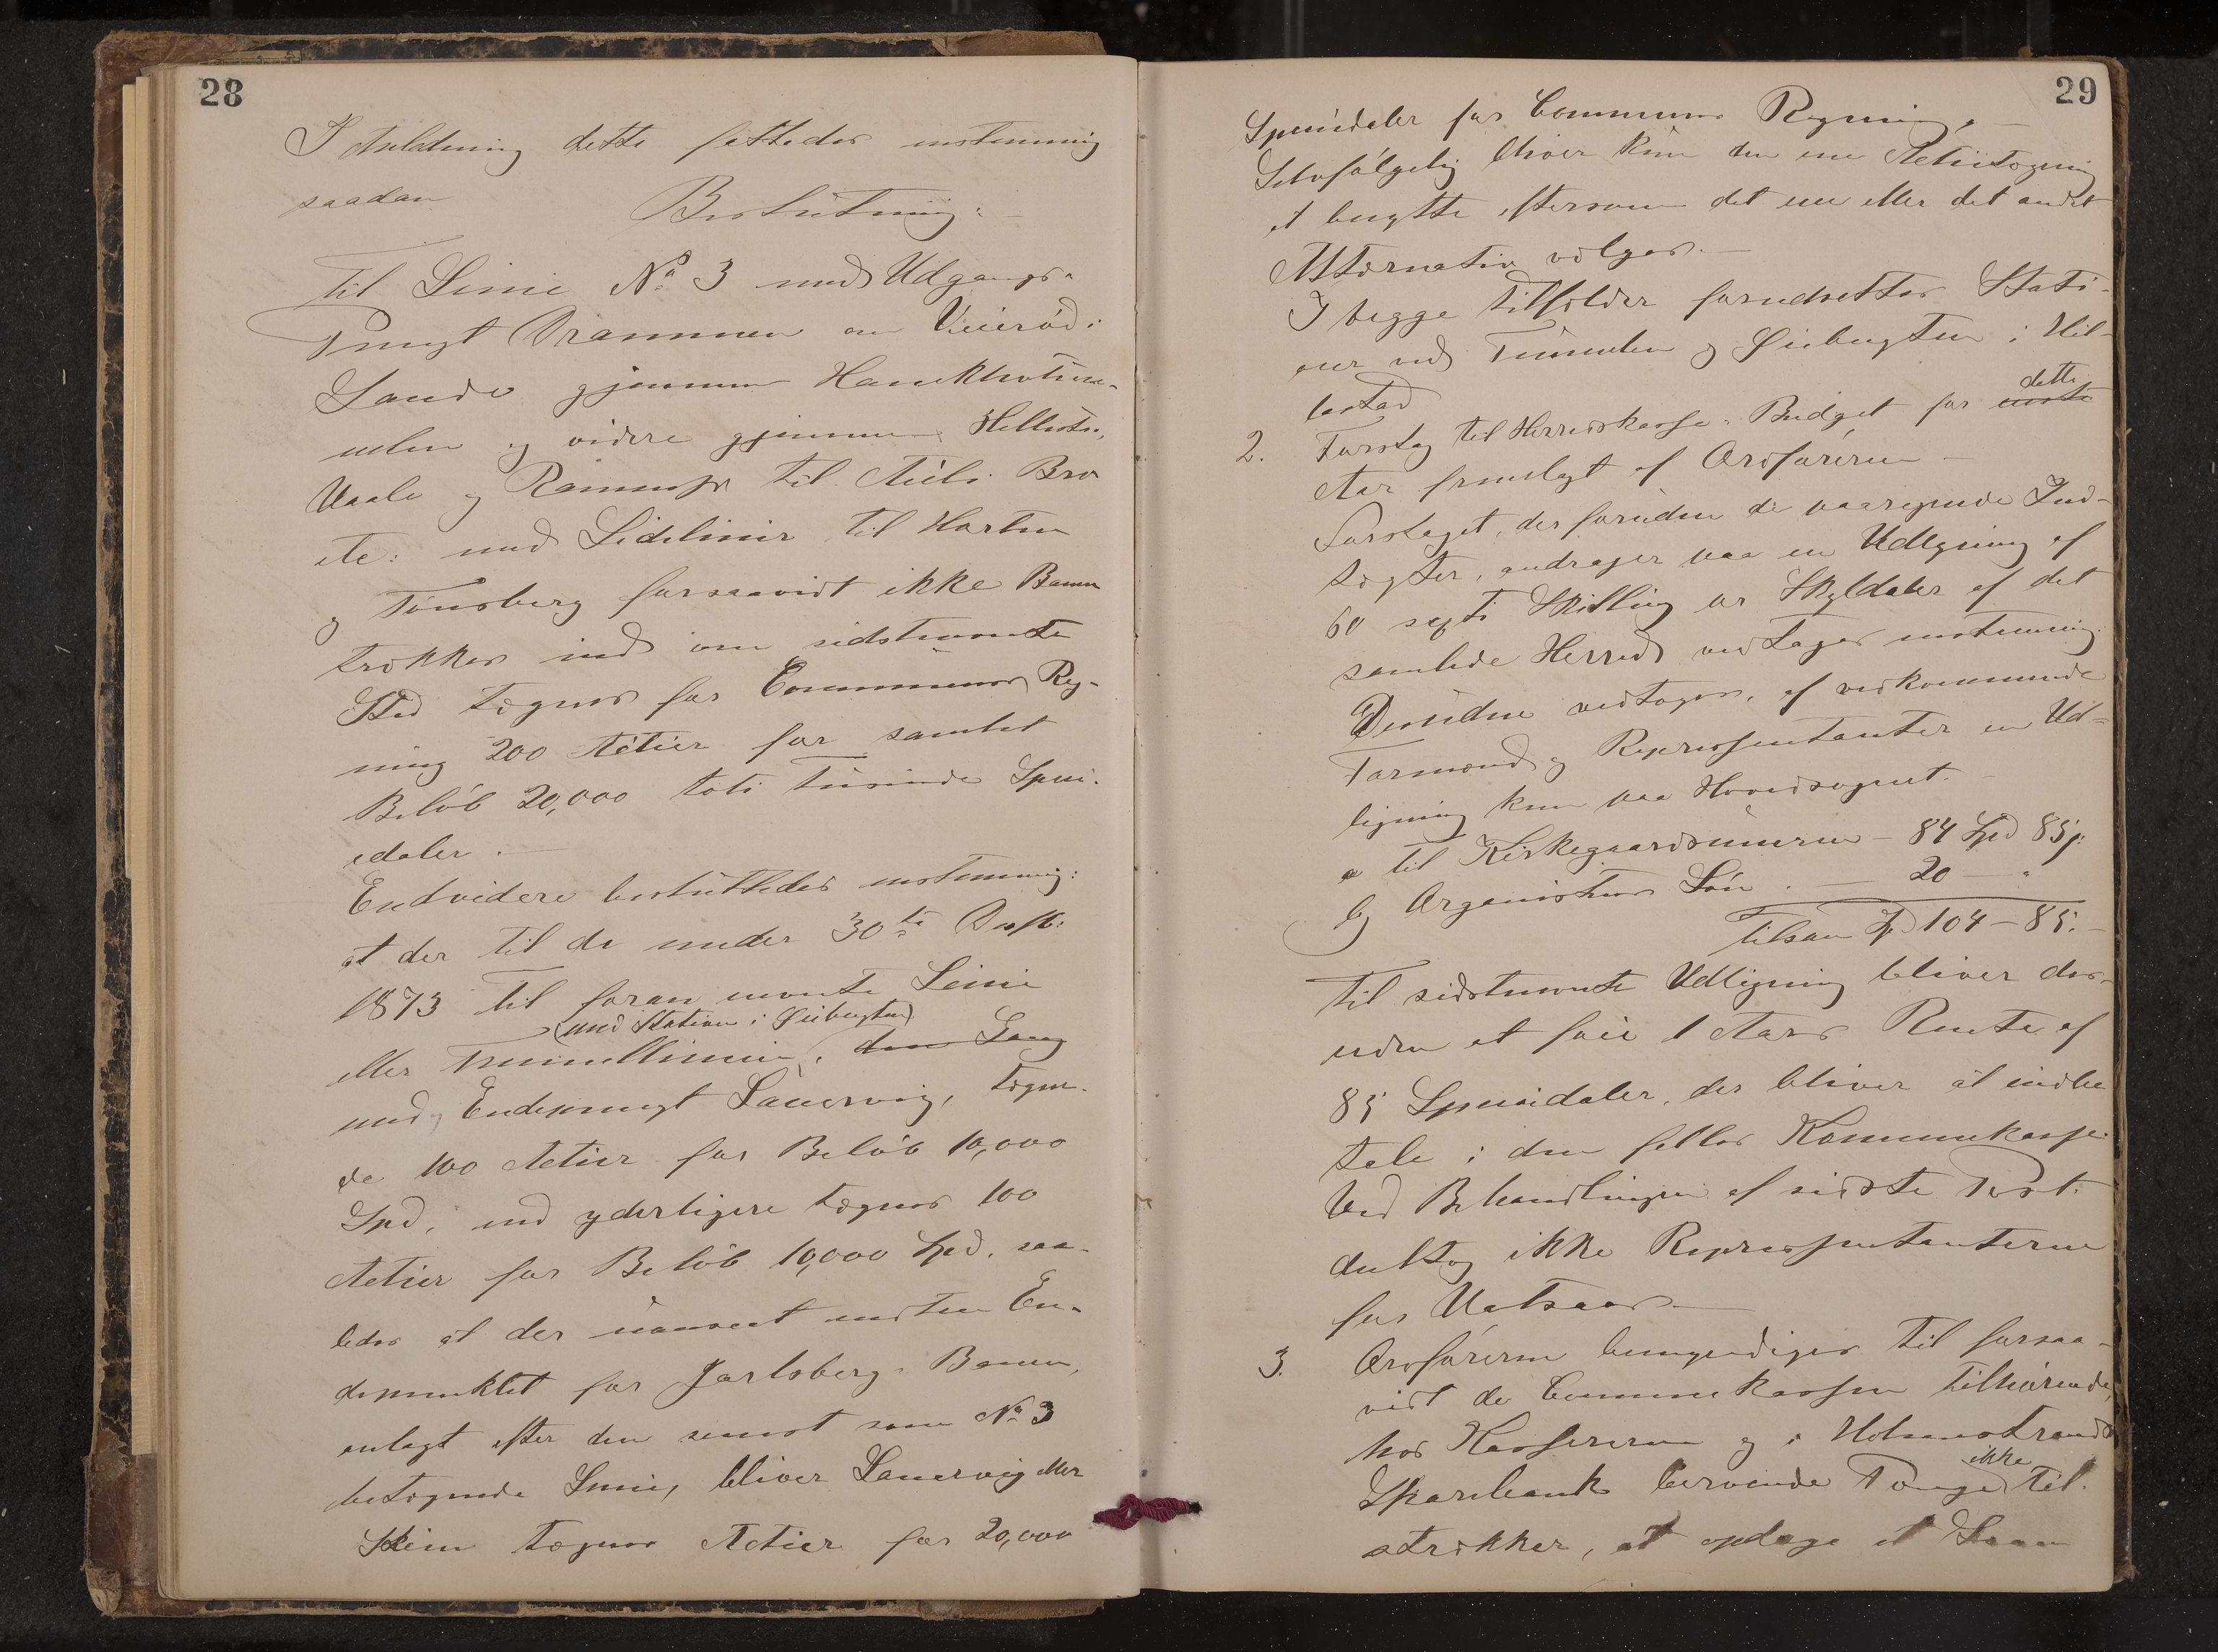 28
I Anledning dette fattedes enstemmig
saadan Beslutning:
Til Linie No 3 med Udgangs-
Pungt Drammen om Veieröd i
Sande gjennem Hanekleivtun-
nelen og videre gjennem Hillestv.
Vaale og Ramnæs til Auli Bro
etc: med Sidelinier til Horten
og Tönsberg forsaavidt ikke Banen
trækkes ind om sidstnævnte
Sted tegnes for Communens Reg-
ning 200 Actier for samlet
Belöb 20,000 toti tusinde Speci-
edaler.
Endvidere besluttedes enstemmig:
at der til de under 30te Septb:
1873 til foran nævnte Linie
(med Station i Eiebugten)
eller Tunnellinien, den Lang
med Endepungt Laurvig, tegne-
de 100 Actier for Belöb 10,000
Spd, end yderligere tegnes 100
Actier for Belöb 10,000 Spd, saa-
ledes at der uanseet enten En-
depunktet for Jarlsberg-Banen,
anlagt efter den senest som No 3
betegnede Linie, bliver Laurvig eller
Skien tegnes Actier for 20,000
29
Speciedaler for Communens Regning.
Selvfølgelig bliver kun den ene Actietegning
at benytte eftersom det ene eller det andet
Alternativ vælges.
I begge Tilfælder forudsættes Stati-
oner ved Tunnelen og Eiebugten i Hil-
lestad
2. Forslag til Herredskasse-Budget for næste dette
Aar fremlagt af Ordføreren
Forslaget, der foruden de paaregnede Ind-
tægter, andrager paa en Udligning af
60 sexti Skilling pr Skylddaler af det
samlede Herred vedtages enstemmig.
Desuden vedtages, af vedkommende
Formænd og Repræsentanter en Ud-
ligning kun paa Hovedsognet.
a til Kirkegaardsmuren - 84 Spd 85 ß.
b) Organistens Lön. — 20 — "
Tilsam Sp 104 - 85.
Til sidstnævnte Udligning bliver des-
uden at föie 1 Aars Rente af
85 Speciedaler, der bliver at indbe
tale i den fælles Kommunekasse.
Ved Behandlingen af sidste Post
deltog ikke Repræsentanterne
for Vatsaas
3. Ordføreren bemyndiges til forsaa-
vidt de Communekassen tilhörende,
hos Kassereren og i Holmestrands
Sparebank beroende Penge ikke til-
strækker, at optage et Laan